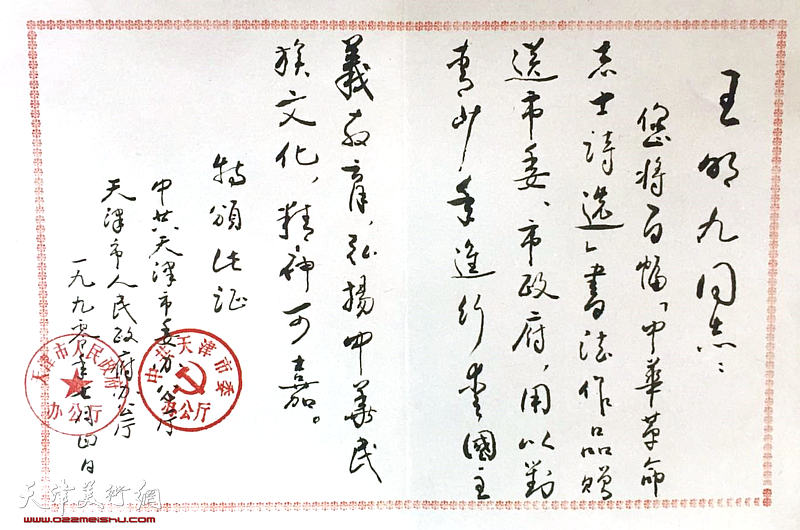 王明九同志：
您将百幅「中華革命
志士詩选」書法作品赠
送市委、市政府，用以對
青少年進行爱國主
義教育，弘揚中華民
族文化，精神可嘉。
特頒此证
中共天津市委办公厅
天津市人民政府办公厅
一九九零年七月
日
中共天津市委
办公厅
天津市人民政府
办公厅
天津美術網
www.022meishu.com